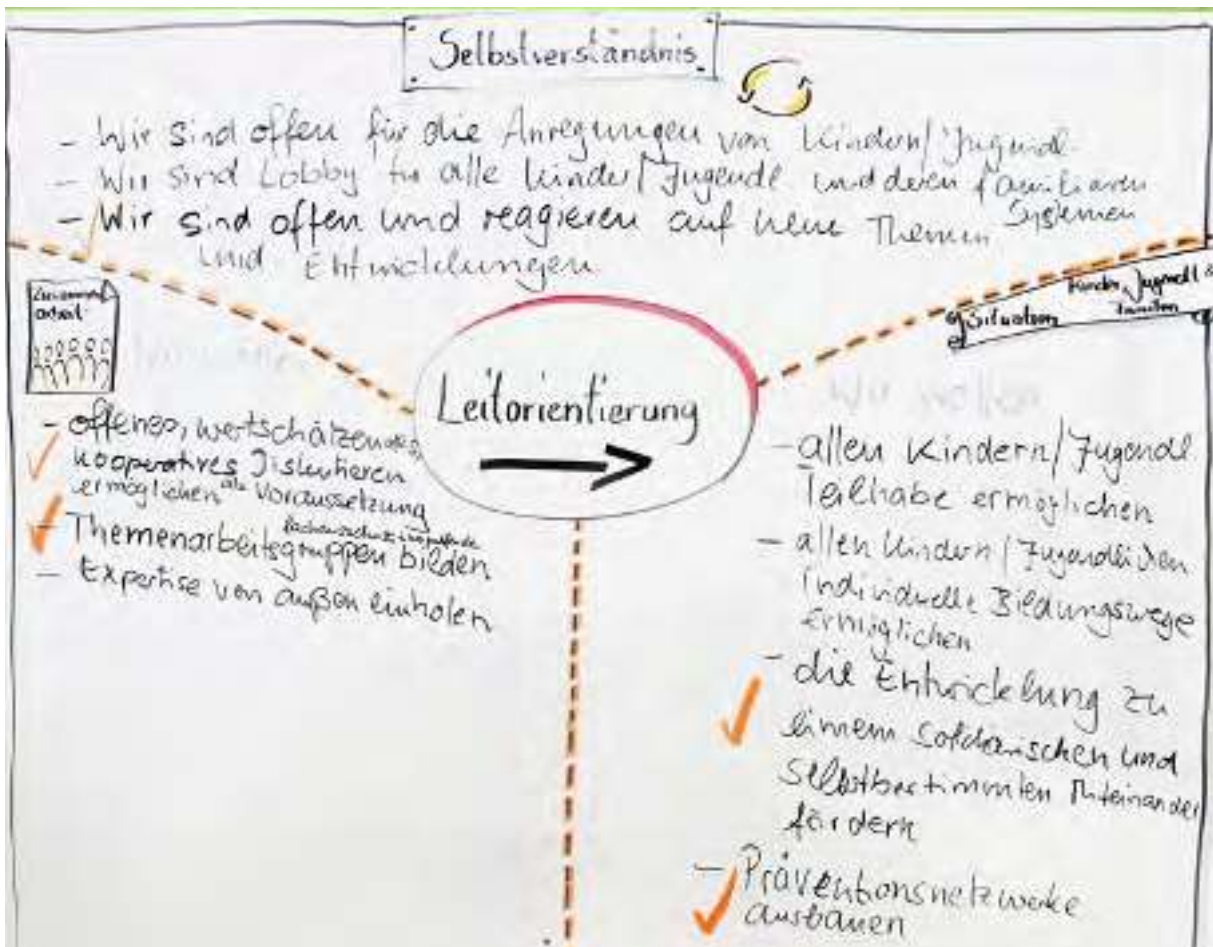 Selbstverständnis
- Wir sind offen für die Anregungen von Kindern/Jugendl.
- Wir sind Lobby für alle Kinder/Jugendl. und deren familiären
Systemen
- Wir sind offen und reagieren auf neue Themen
und Entwicklungen
Zusammen
arbeit
Kinder, Jugendl &
Familien
Situation
Leitorientierung
Wir wollen
- offenes, wertschätzendes,
kooperatives Diskutieren
ermöglichen als Voraussetzung
- Themenarbeitsgruppen bilden
- Expertise von außen einholen
- allen Kindern/Jugendl.
Teilhabe ermöglichen
- allen Kindern/Jugendlichen
individuelle Bildungswege
ermöglichen
- die Entwicklung zu
einem solidarischen und
selbstbestimmten Miteinander
fördern
- Präventionsnetzwerke
ausbauen